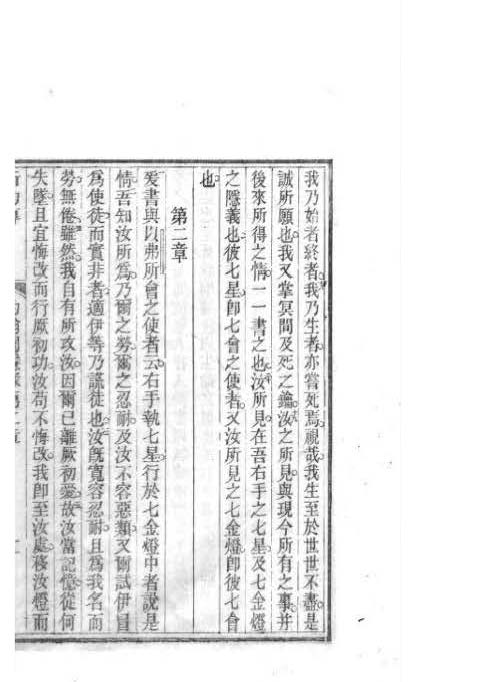 我乃始者終者。我乃生者。亦嘗死焉。視哉。我生至於世世不盡。是
誠所願也。我又掌冥間及死之鑰。汝之所見。與現今所有之事。并
後來所得之情。一一書之也。汝所見在吾右手之七星。及七金燈
之隱義也。彼七星。卽七會之使者。又汝所見之七金燈。卽彼七會
也。
第二章
爰書與以弗所會之使者云。右手執七星。行於七金燈中者說是
情。吾知汝所為。乃爾之勞。爾之忍耐。及汝不容惡類。又爾試伊冒
為使徒而實非者。適伊等乃謊徒也。汝旣寬容忍耐。且為我名而
勞無倦。雖然。我自有所攻汝。因爾已離厥初愛。故汝當記憶從何
失墜。且宜悔改而行厥初功。汝苟不悔改。我卽至汝處。移汝燈而